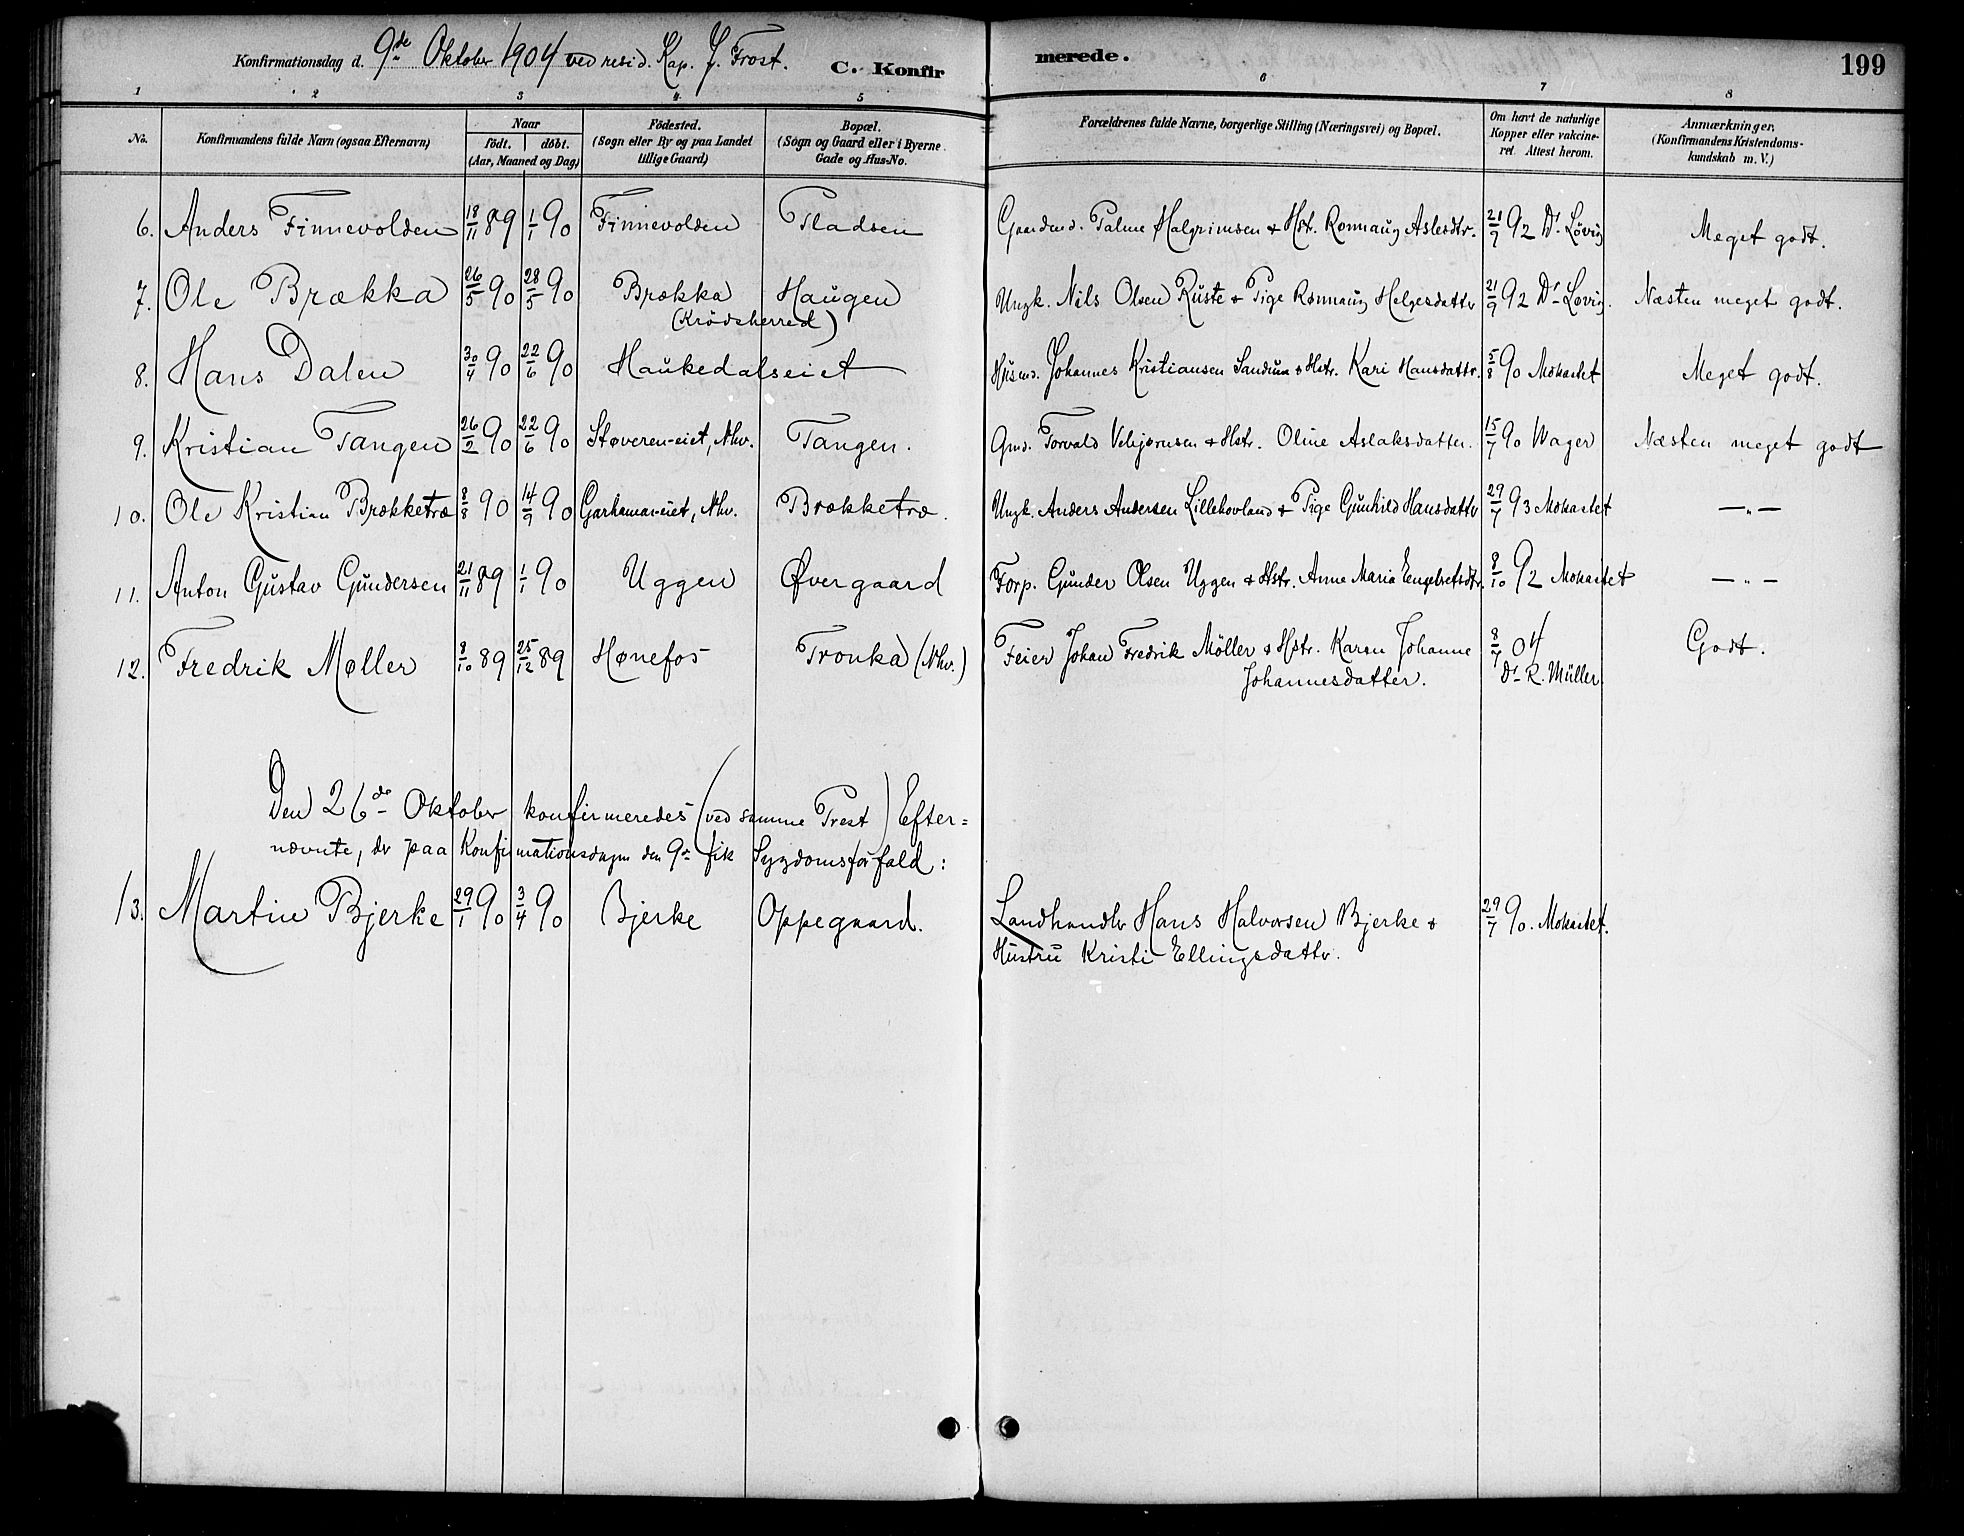 Konfirmationsdag d. 9de Oktober 1904 ved resid. Kap. J. Frost. C. Konfirmerede. 199
1 2 3 4 5 6 7 8
No. Konfirmandens fulde Navn (ogsaa Efternavn) Naar født. døbt. (Aar, Maaned og Dag) Fødested. (Sogn eller By og paa Landet tillige Gaard) Bopæl. (Sogn og Gaard eller i Byerne Gade og Hus-No. Forældrenes fulde Navne, borgerlige Stilling (Næringsvei) og Bopæl. Om havt de naturlige Kopper eller vakcineret. Attest herom. Anmærkninger, (Konfirmandens Kristendomskundskab m. V.)
6. Anders Finnevolden 18/11 89 1/1 90 Finnevolden Pladsen Gaardmd. Palme Halgrimsen & Hstr. Rønnaug Aslesdtr. 21/9 92 Dr. Løvig Meget godt.
7. Ole Brækka 26/5 90 28/5 90 Brækka (Krødsherred) Haugen Ungk. Nils Olsen Ruste & Pige Rønnaug Helgesdatter 21/9 92 Dr. Løvig. Næsten meget godt.
8. Hans Dalen 30/4 90 22/6 90 Haukedalseiet Husmd. Johannes Kristiansen Sandum & Hstr. Kari Hansdattr. 5/8 90 Mohastet Meget godt.
9. Kristian Tangen 26/2 90 22/6 90 Støveren-eiet, Nhv. Tangen. Gmd. Torvald Vebjørnsen & Hstr. Oline Aslaksdatter. 15/7 90 Wager Næsten meget godt
10. Ole Kristian Brækketræ 8/8 90 14/9 90 Garhamar-eiet, Nhv. Brækketræ. Ungk. Anders Andersen Lillehovland & Pige Gunhild Hansdattr 29/7 93 Mohastet —"—
11. Anton Gustav Gundersen 21/11 89 1/1 90 Uggen Øvergaard Forp. Gunder Olsen Uggen & Hstr. Anne Maria Engebretsdtr. 8/10 92 Mohastet —"—
12. Fredrik Møller 8/10 89 25/12 89 Hønefos Tronka (Nhv.) Feier Johan Fredrik Möller & Hstr. Karen Johanne 8/7 04 Godt.
Johannesdatter. Dr. R. Müller
Den 26de Oktober konfirmeredes (ved samme Prest) Efter=
nævnte, der paa Konfirmationsdagen den 9de fik Sygdomsforfald:
13. Martin Bjerke 29/1 90 3/4 90 Bjerke Oppegaard. Landhandler Hans Halvorsen Bjerke & 29/7 90. Mohastet.
Hustru Kristi Ellingsdattr.